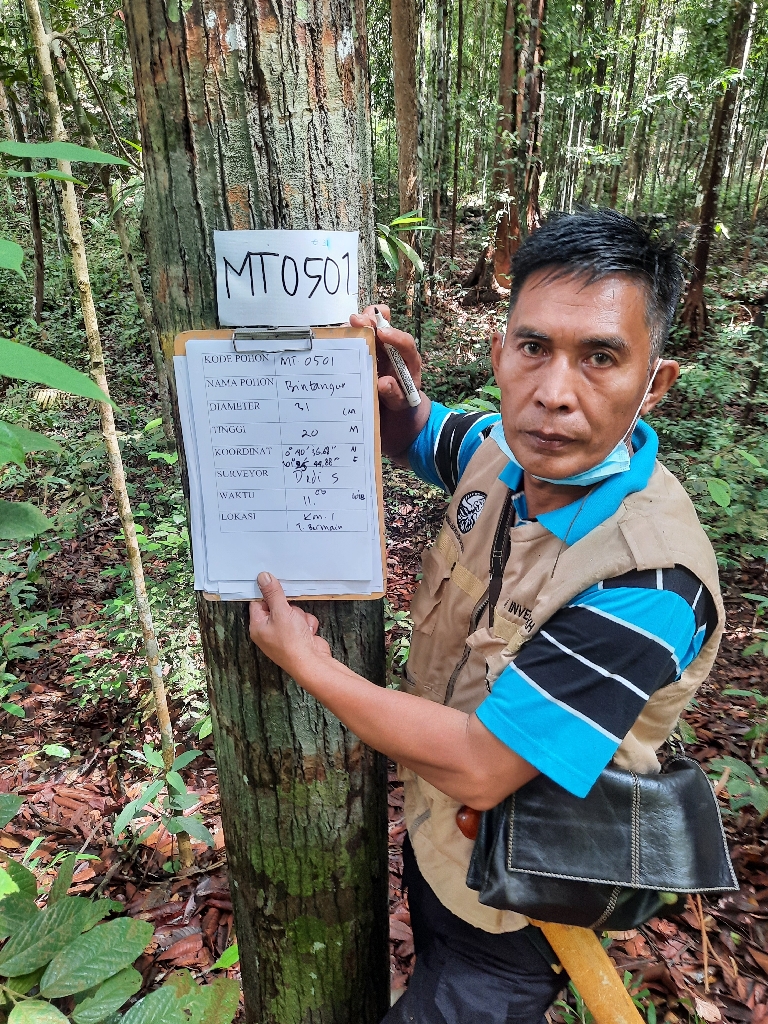 MT0501
KODE POHON MT 0501
NAMA POHON Bintangur
DIAMETER 31 CM
TINGGI 20 M
KOORDINAT 0° 40' 36.68" N
44.88" E
SURVEYOR Dedi S
WAKTU 11.00 WIB
LOKASI Km. 1
T. Bermain
INVEN